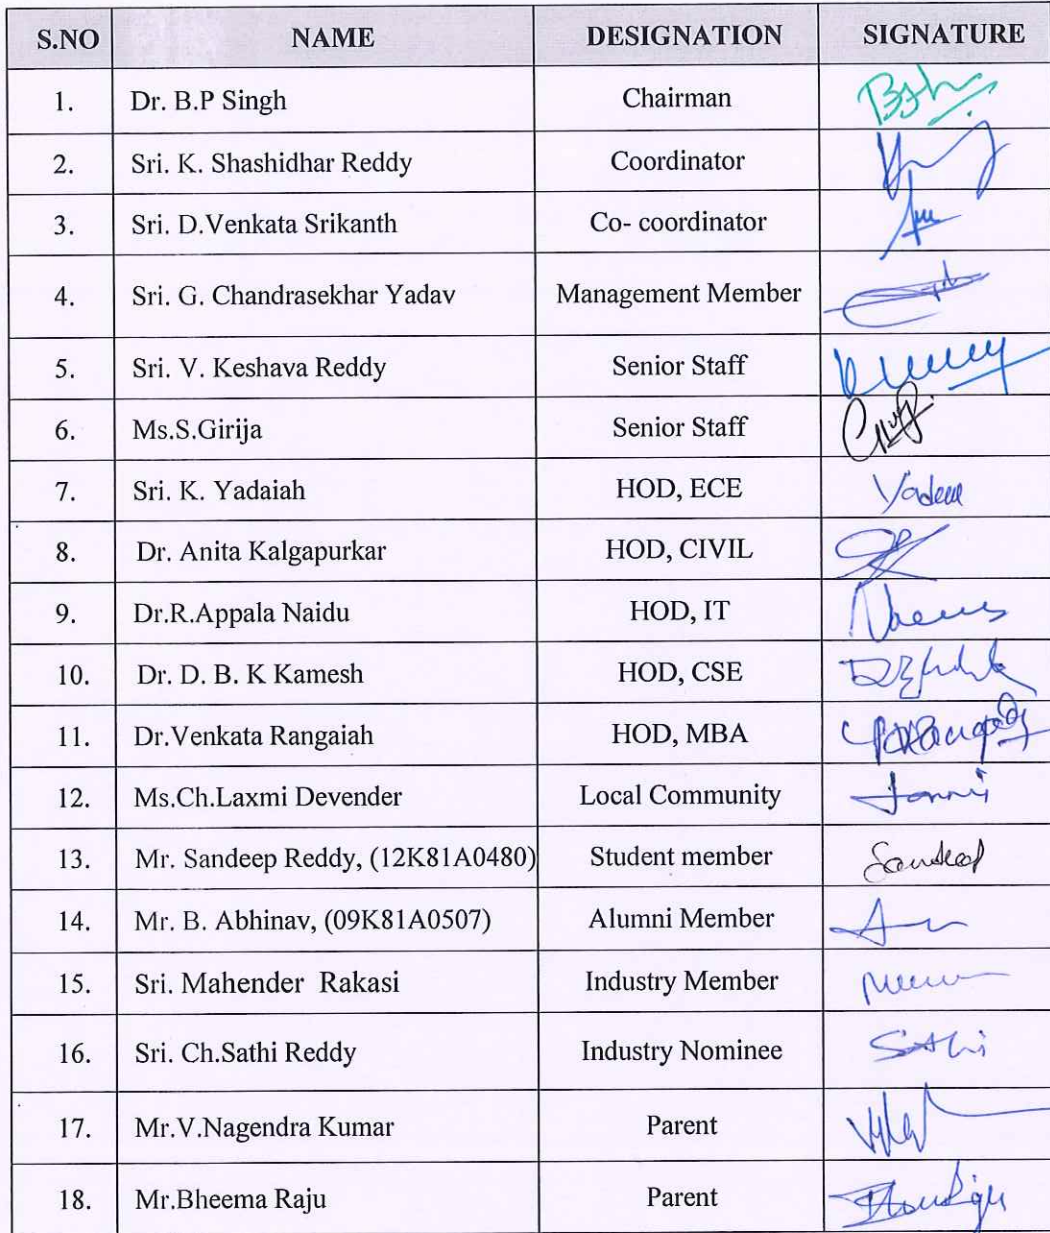 S.NO NAME DESIGNATION SIGNATURE
1. Dr. B.P Singh Chairman
2. Sri. K. Shashidhar Reddy Coordinator
3. Sri. D.Venkata Srikanth Co- coordinator
4. Sri. G. Chandrasekhar Yadav Management Member
5. Sri. V. Keshava Reddy Senior Staff
6. Ms.S.Girija Senior Staff
7. Sri. K. Yadaiah HOD, ECE
8. Dr. Anita Kalgapurkar HOD, CIVIL
9. Dr.R.Appala Naidu HOD, IT
10. Dr. D. B. K Kamesh HOD, CSE
11. Dr.Venkata Rangaiah HOD, MBA
12. Ms.Ch.Laxmi Devender Local Community
13. Mr. Sandeep Reddy, (12K81A0480) Student member Sandeep
14. Mr. B. Abhinav, (09K81A0507) Alumni Member
15. Sri. Mahender Rakasi Industry Member
16. Sri. Ch.Sathi Reddy Industry Nominee Sathi
17. Mr.V.Nagendra Kumar Parent
18. Mr.Bheema Raju Parent